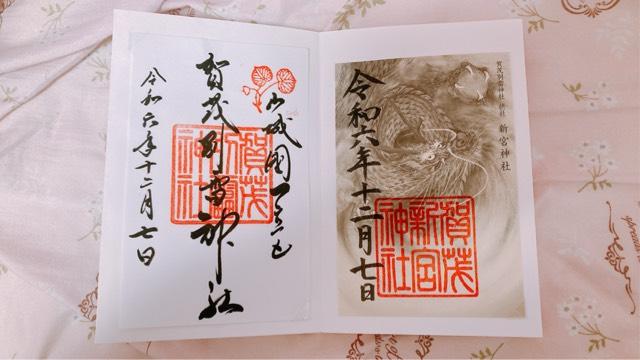 山城國一之宮
賀茂別雷神社
令和六年十二月七日
賀茂別雷神社
賀茂別雷神社 摂社 新宮神社
令和六年十二月七日
賀茂新宮神社